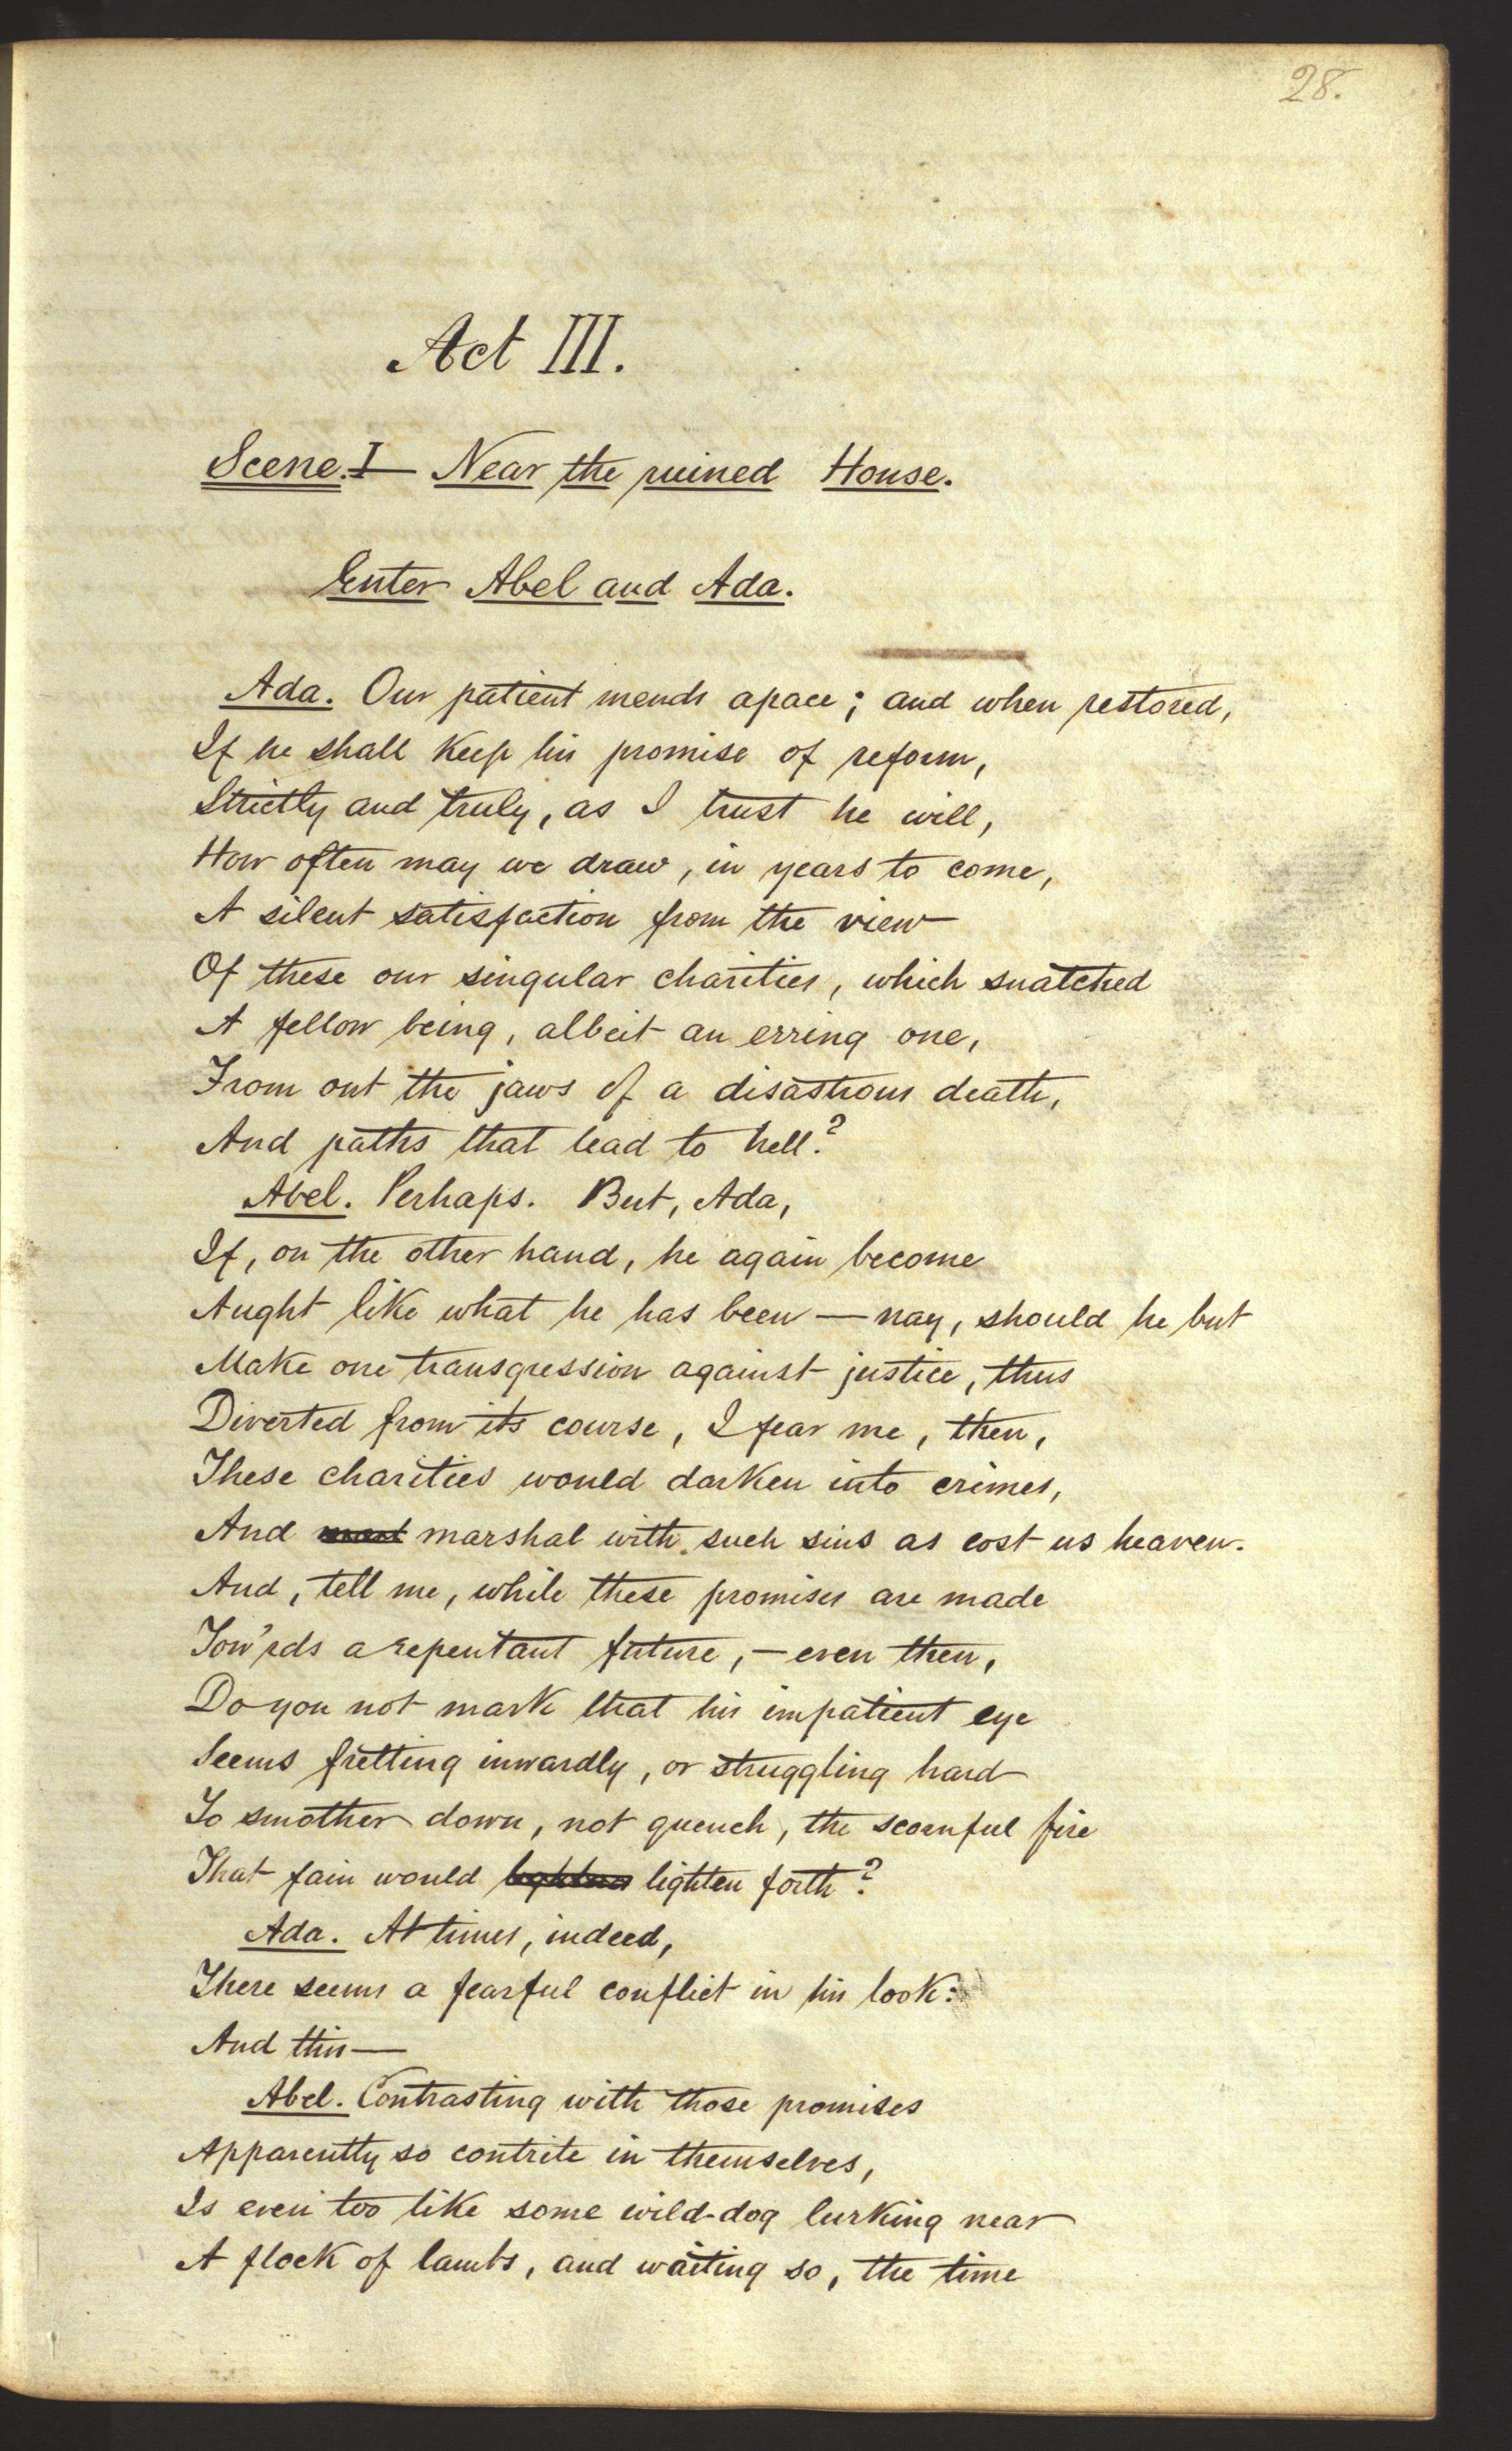 28.
Act III.
Scene. I — Near the ruined House.
Enter Abel and Ada.
Ada. Our patient mends apace; and when restored,
If he shall keep his promise of reform,
Strictly and truly, as I trust he will,
How often may we draw, in years to come,
A silent satisfaction from the view
Of these our singular charities, which snatched
A fellow being, albeit an erring one,
From out the jaws of a disastrous death,
And paths that lead to hell?
Abel. Perhaps. But, Ada,
If, on the other hand, he again become
Aught like what he has been — nay, should he but
Make one transgression against justice, thus
Diverted from its course, I fear me, then,
These charities would darken into crimes,
And marshal with such sins as cost us heaven.
And, tell me, while these promises are made
Tow'rds a repentant future, — even then,
Do you not mark that his impatient eye
Seems fretting inwardly, or struggling hard
To smother down, not quench, the scornful fire
That fain would lighten forth?
Ada. At times, indeed,
There seems a fearful conflict in his look:
And this —
Abel. Contrasting with those promises
Apparently so contrite in themselves,
Is even too like some wild-dog lurking near
A flock of lambs, and waiting so, the time